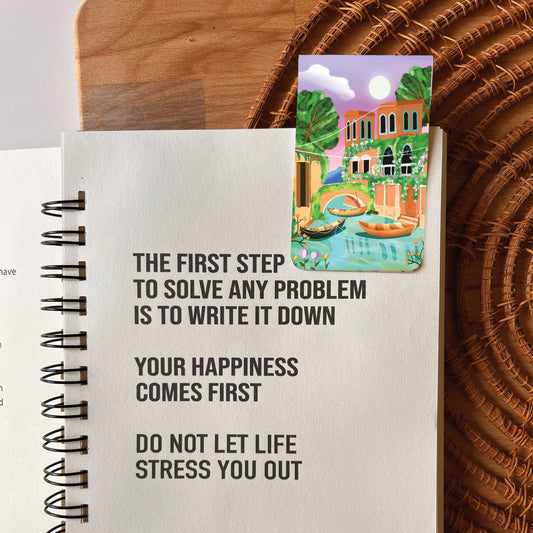 have
THE FIRST STEP
TO SOLVE ANY PROBLEM
IS TO WRITE IT DOWN
YOUR HAPPINESS
COMES FIRST
DO NOT LET LIFE
STRESS YOU OUT